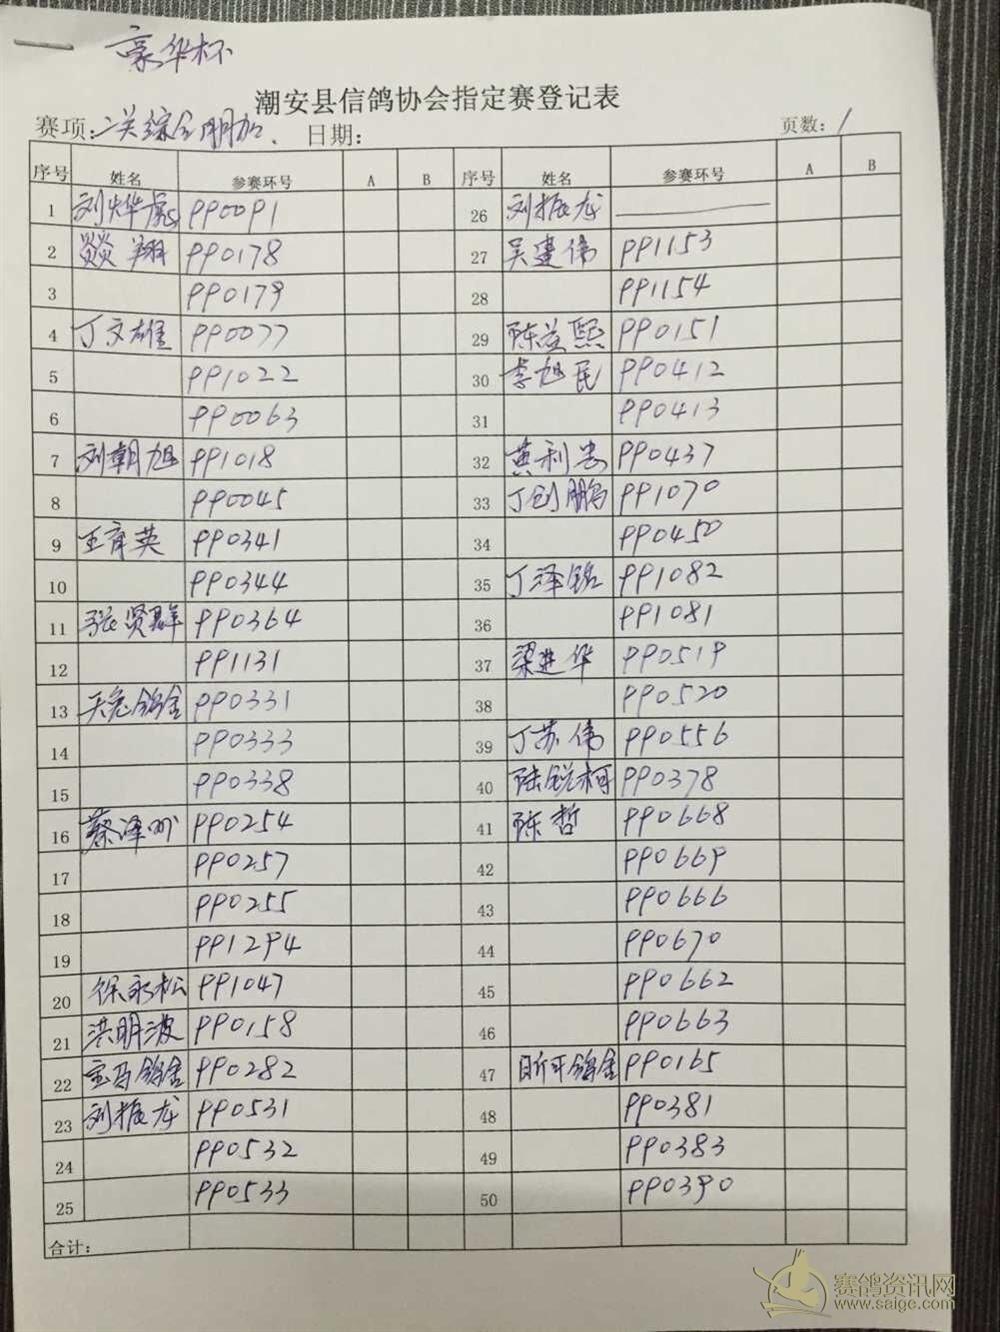 豪华杯
潮安县信鸽协会指定赛登记表
赛项：二关综合 日期： 页数：1
序号 姓名 参赛环号 A B 序号 姓名 参赛环号 A B
1 刘烨彪 PP0091 26 刘振龙
2 翔 PP0178 27 吴建伟 PP1153
3 PP0179 28 PP1154
4 丁文雄 PP0077 29 陈益熙 PP0151
5 PP1022 30 李旭民 PP0412
6 PP0063 31 PP0413
7 刘朝旭 PP1018 32 黄利 PP0437
8 PP0045 33 丁创鹏 PP1070
9 王育英 PP0341 34 PP0450
10 PP0344 35 丁泽铭 PP1082
11 张贤群 PP0364 36 PP1081
12 PP1131 37 梁进华 PP0519
13 天 鸽舍 PP0331 38 PP0520
14 PP0333 39 丁苏伟 PP0556
15 PP0338 40 陆锐柯 PP0378
16 蔡泽 PP0254 41 陈哲 PP0668
17 PP0257 42 PP0669
18 PP0255 43 PP0666
19 PP1294 44 PP0670
20 徐永松 PP1047 45 PP0662
21 洪明波 PP0158 46 PP0663
22 宝马鸽舍 PP0282 47 昕平鸽舍 PP0165
23 刘振龙 PP0531 48 PP0381
24 PP0532 49 PP0383
25 PP0533 50 PP0390
合计：
赛鸽资讯网
www.saige.com